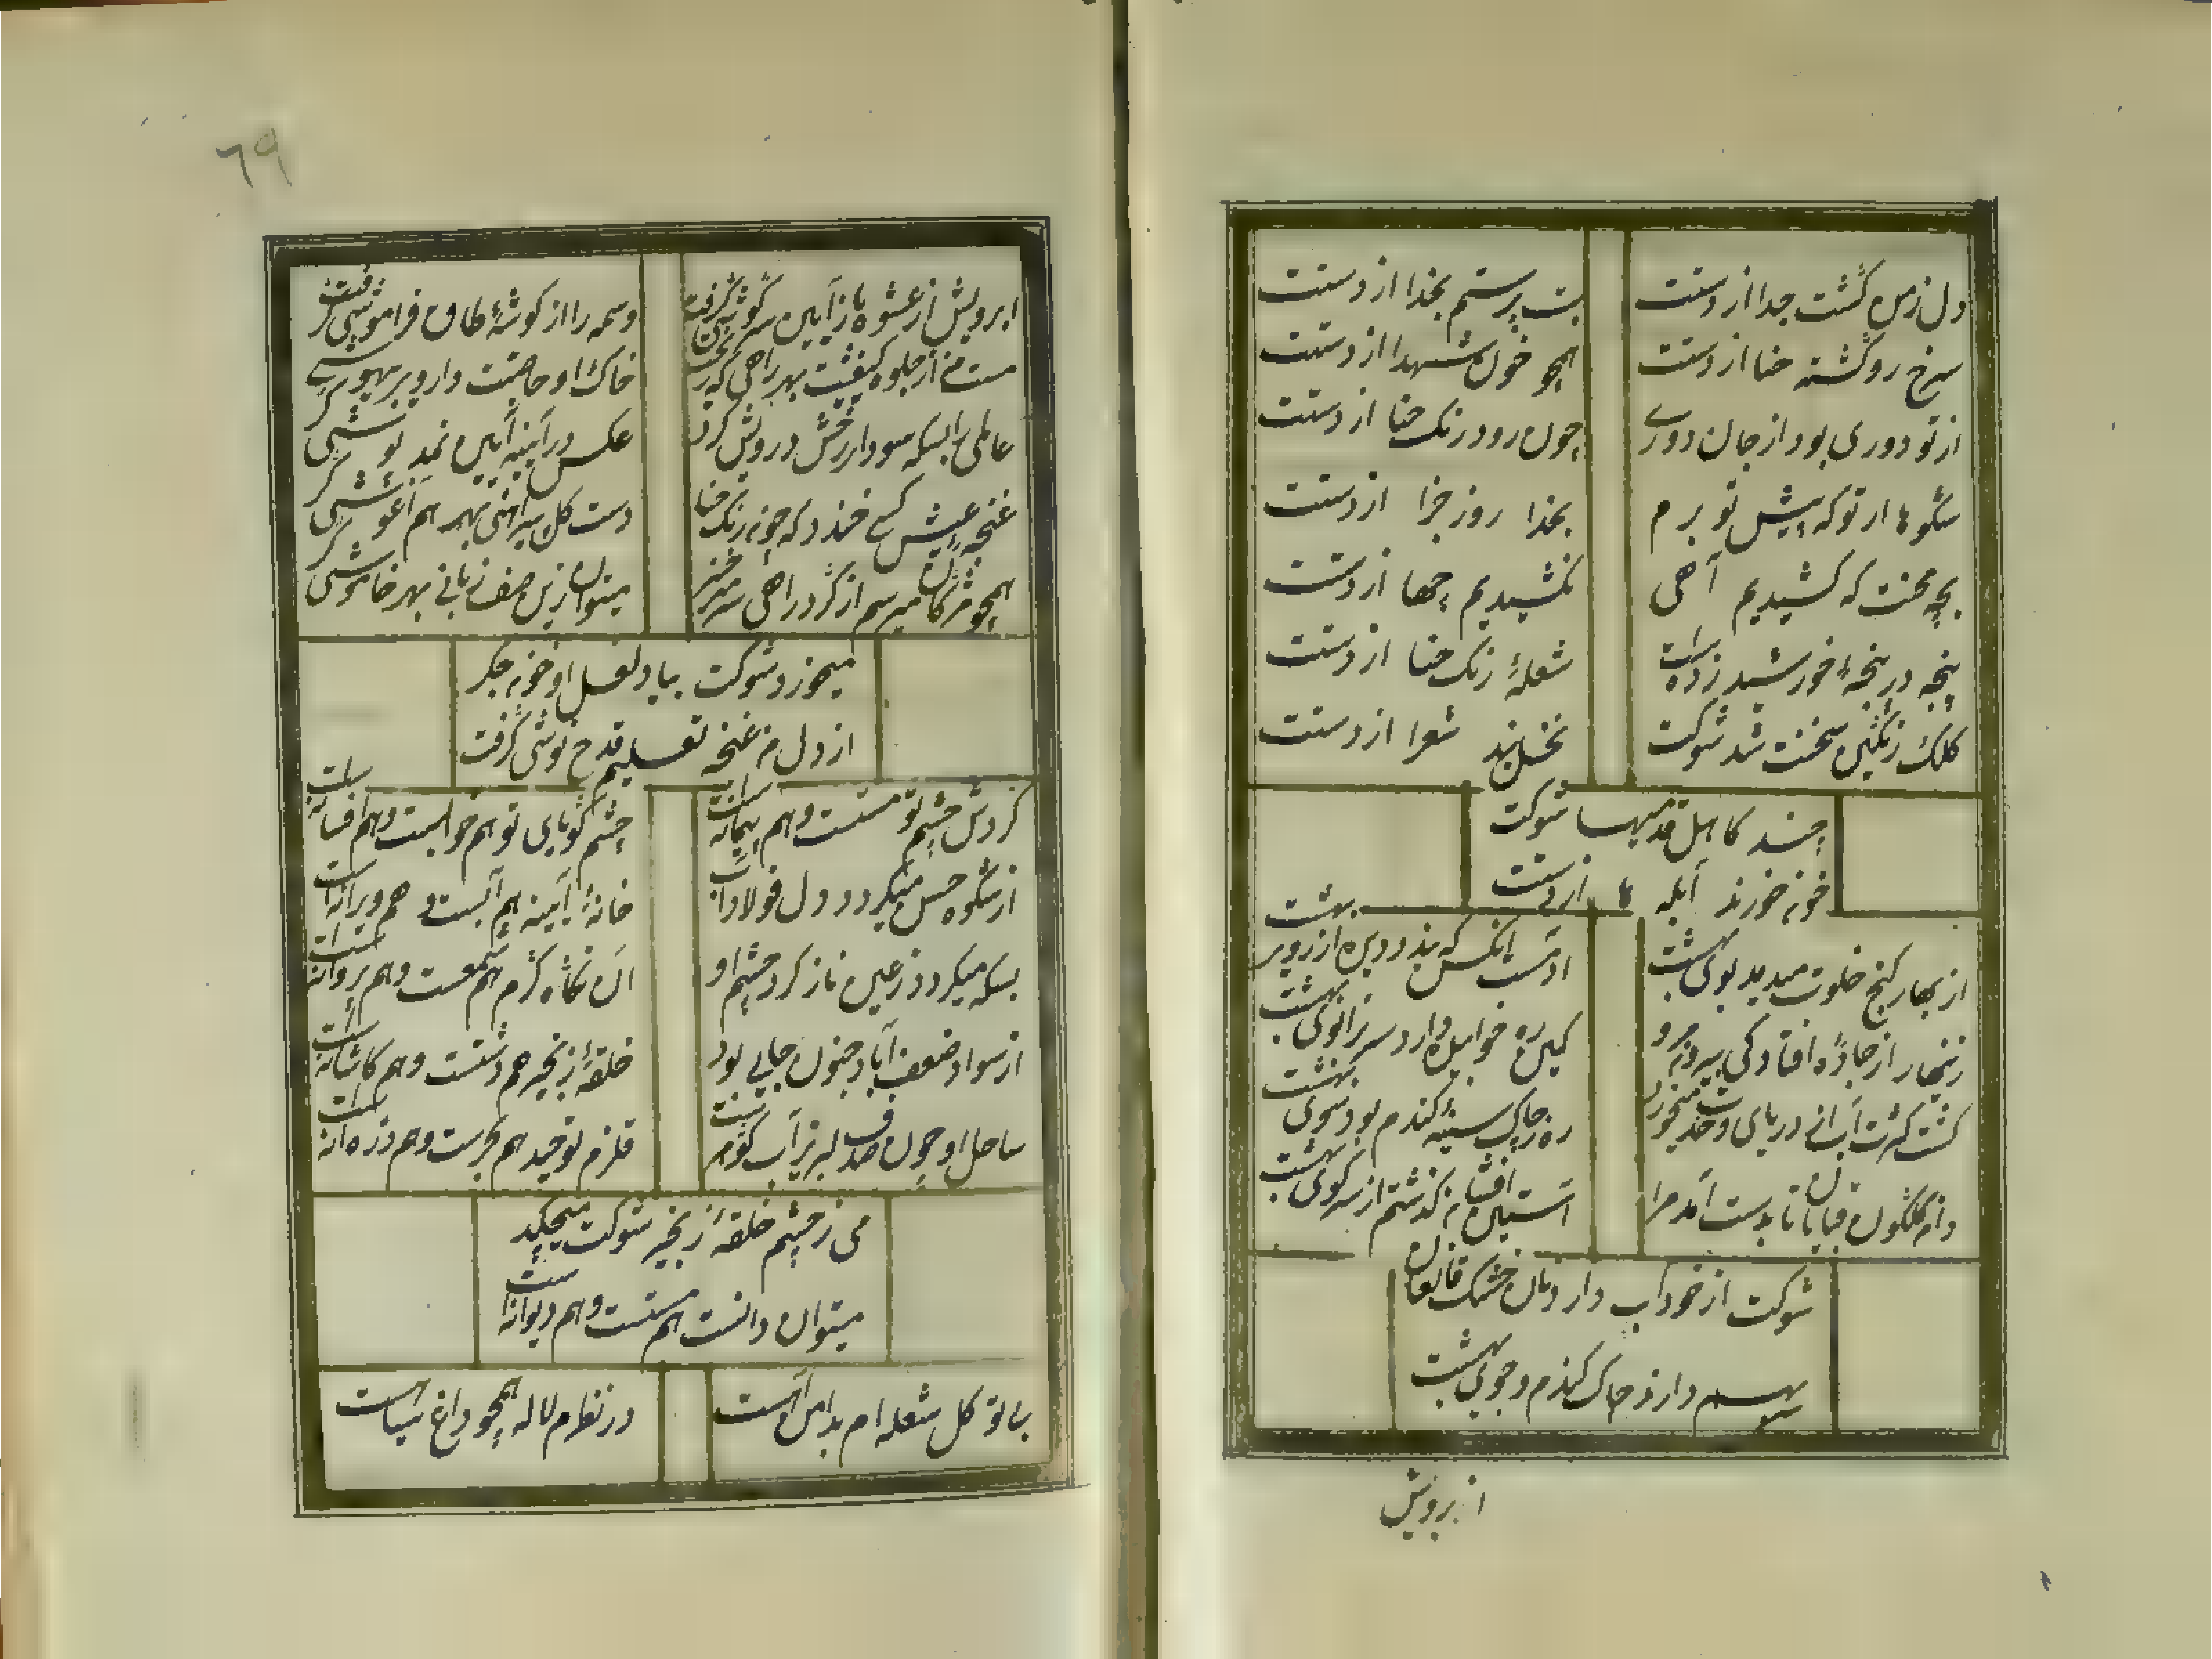 دل ز من گشت جدا از دستت
بت پرستم بخدا از دستت
سرخ رو گشته حنا از دستت
همچو خون شهدا از دستت
از تو دوری بود از جان دوری
چون رود رنک حنا از دستت
شکوها از تو که پیش تو برم
بخدا روز جزا از دستت
بچه محنت که کشیدیم آهی
نکشیدیم چها از دستت
پنجه در پنجهٔ خورشید زده است
شعلهٔ رنک حنا از دستت
کلک رنگین سخنت شد شوکت
نخلبند شعرا از دستت
چند کاهل قدمیها شوکت
خون خورند آبله ها از دستت
از بهار کنج خلوت میدمد بوی بهشت
اوست آنکس که بندد دیده از روی بهشت
زنهار از جادهٔ افتادکی بیرون مرو
کین ره خوابیده دارد سر بزانوی بهشت
کشت کثرت آب از دریای وحدت میخورد
ره ز چاک سینهٔ کندم بود سوی بهشت
دامن کلکون قبایان تا بدست آمد مرا
آستین افشان گذشتم از سر کوی بهشت
شوکت از خود آب دارد نان خشک قانعان
بهم دارند چاک کندم و جوی بهشت
ابرویش
٦٩
ابرویش از عشوه باز آیین سرگوشی گرفت
وسمه را از کوشهٔ طاق فراموشی گرفت
مست من از جلوه کیفیت بهر راهی که ریخت
خاک او خاصیت داروی بیهوشی گرفت
عالمی را بسکه سودای رخش درویش کرد
عکس در آیینه آیین نمد پوشی گرفت
غنچهٔ عیش کسی خندد که چون رنک حنا
دست کل پیراهنی بهر هم آغوشی گرفت
همچو مژکان میرسم از گرد راهی سرمه خیز
میتوان از من صف زبانی بهر خاموشی گرفت
میخورد شوکت بیاد لعل او خون جکر
از دل من غنچه تعلیم قدح نوشی گرفت
کردش چشم تو مستست و هم پیمانه است
چشم کویای تو هم خوابست و هم افسانه است
از شکوه حسن میکردد دل فولاد آب
خانهٔ آیینه هم آبست و هم ویرانه است
بسکه میکردد ز عین ناز کرد چشم او
آن نکاه گرم هم شمعست و هم پروانه است
از سواد ضعف آباد جنون جایی بود
حلقهٔ زنجیر هم دشتست و هم کاشانه است
ساحل او چون صدف لبریز آب کوهرست
قلزم توحید هم بحرست و هم دردانه است
می ز چشم حلقهٔ زنجیر شوکت میچکد
میتوان دانست هم مستست و هم دیوانه است
بی تو کل شعله ام بدامن است
در نظرم لاله همچو داغ سیاست